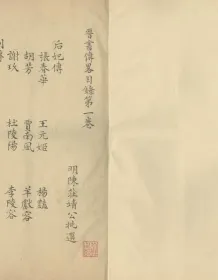 晉書傳畧目錄第一卷
明陳莊靖公批選
后妃傳
張春華 王元姬 楊豔
胡芳 賈南風 羊獻容
謝玖 杜陵陽 李陵容